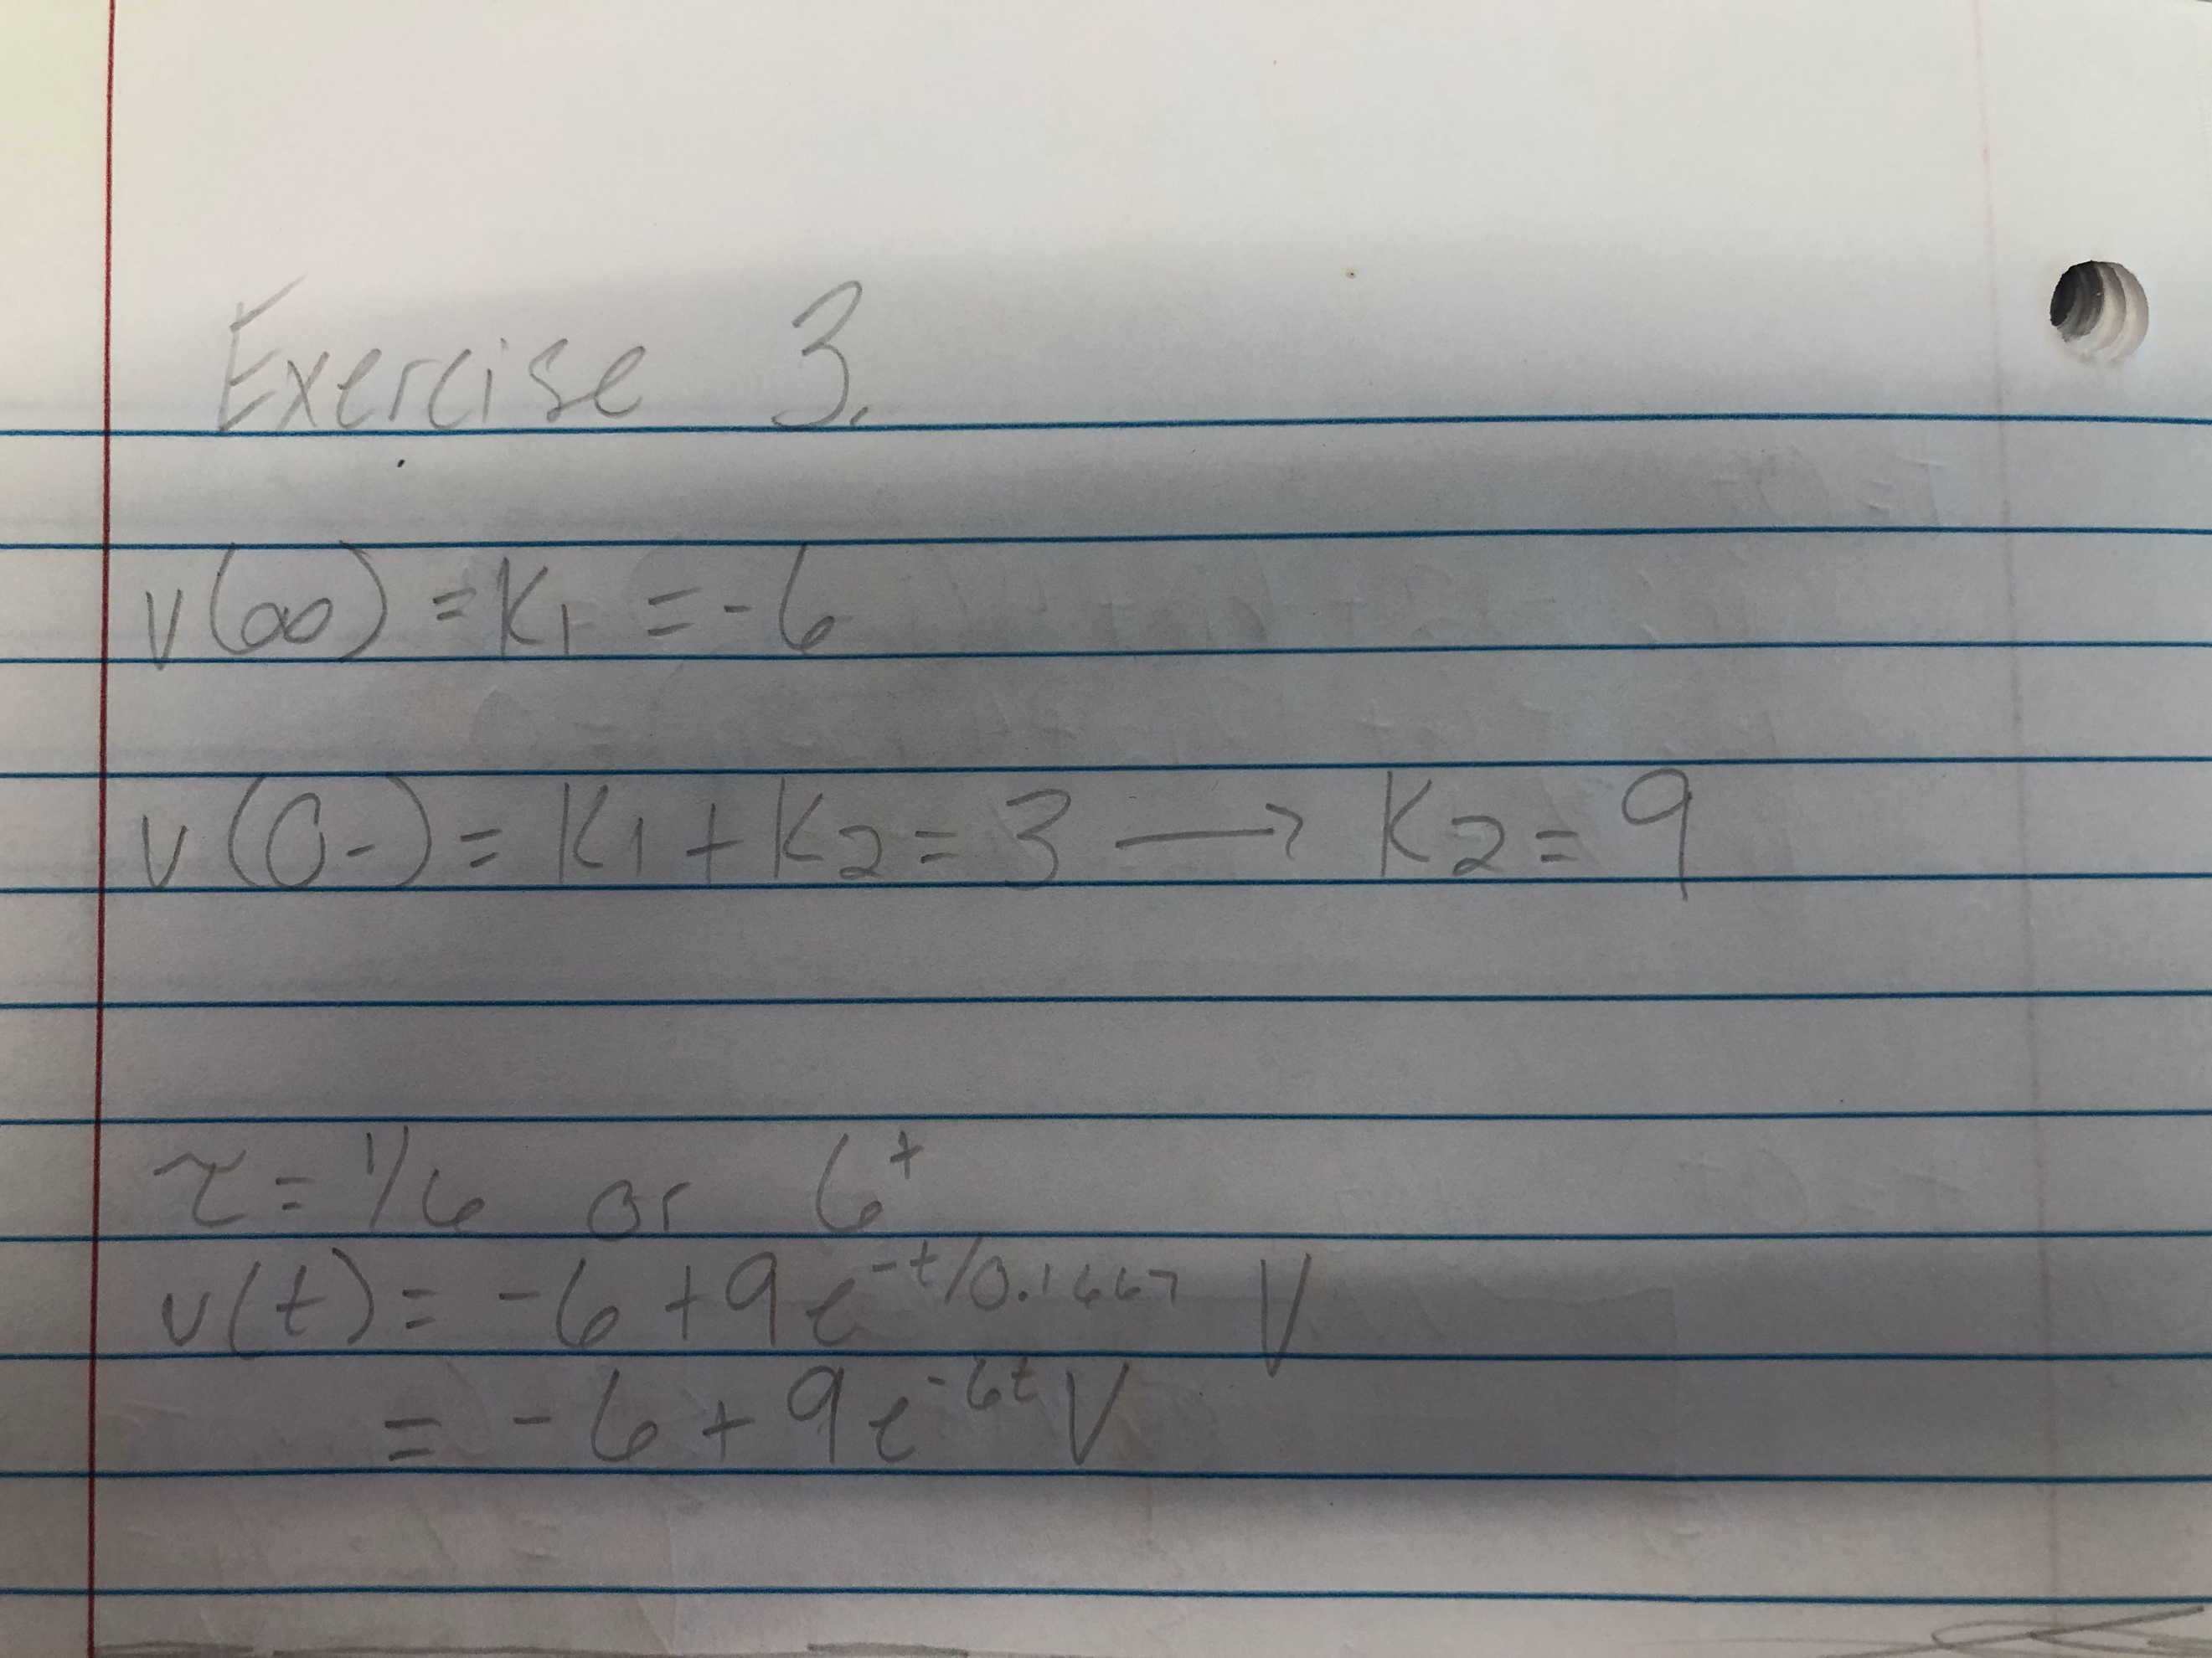 Exercise 3.
v(∞) = K₁ = -6
v(0-) = K₁ + K₂ = 3 → K₂ = 9
τ = 1/6 or 6^t
v(t) = -6 + 9e^(-t/0.1667) V
= -6 + 9e^(-6t) V